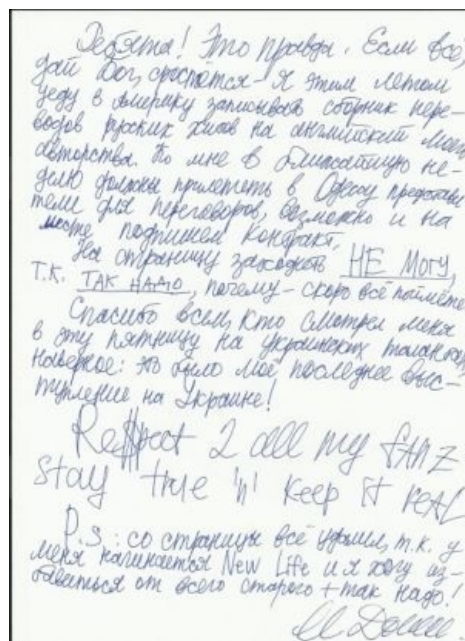 Ребята! Это правда. Если всё,
дай Бог, срастётся – я этим летом
уеду в Америку записывать сборник пере-
водов русских хитов на английский моего
авторства. Ко мне в ближайшую не-
делю должны прилететь в Одессу представи
тели для переговоров, возможно и на
месте подпишем контракт.
На страницу заходить НЕ МОГУ,
Т.К. ТАК НАДО, почему – скоро всё поймёте
Спасибо всем, кто смотрел меня
в эту пятницу на украинских талантах,
наверное: это было моё последнее выс-
тупление на Украине!
Re$pect 2 all my fanz
Stay true 'n' keep it real
P.S.: со страницы всё удалил, т.к. у
меня начинается New Life и я хочу из-
бавиться от всего старого + так надо!